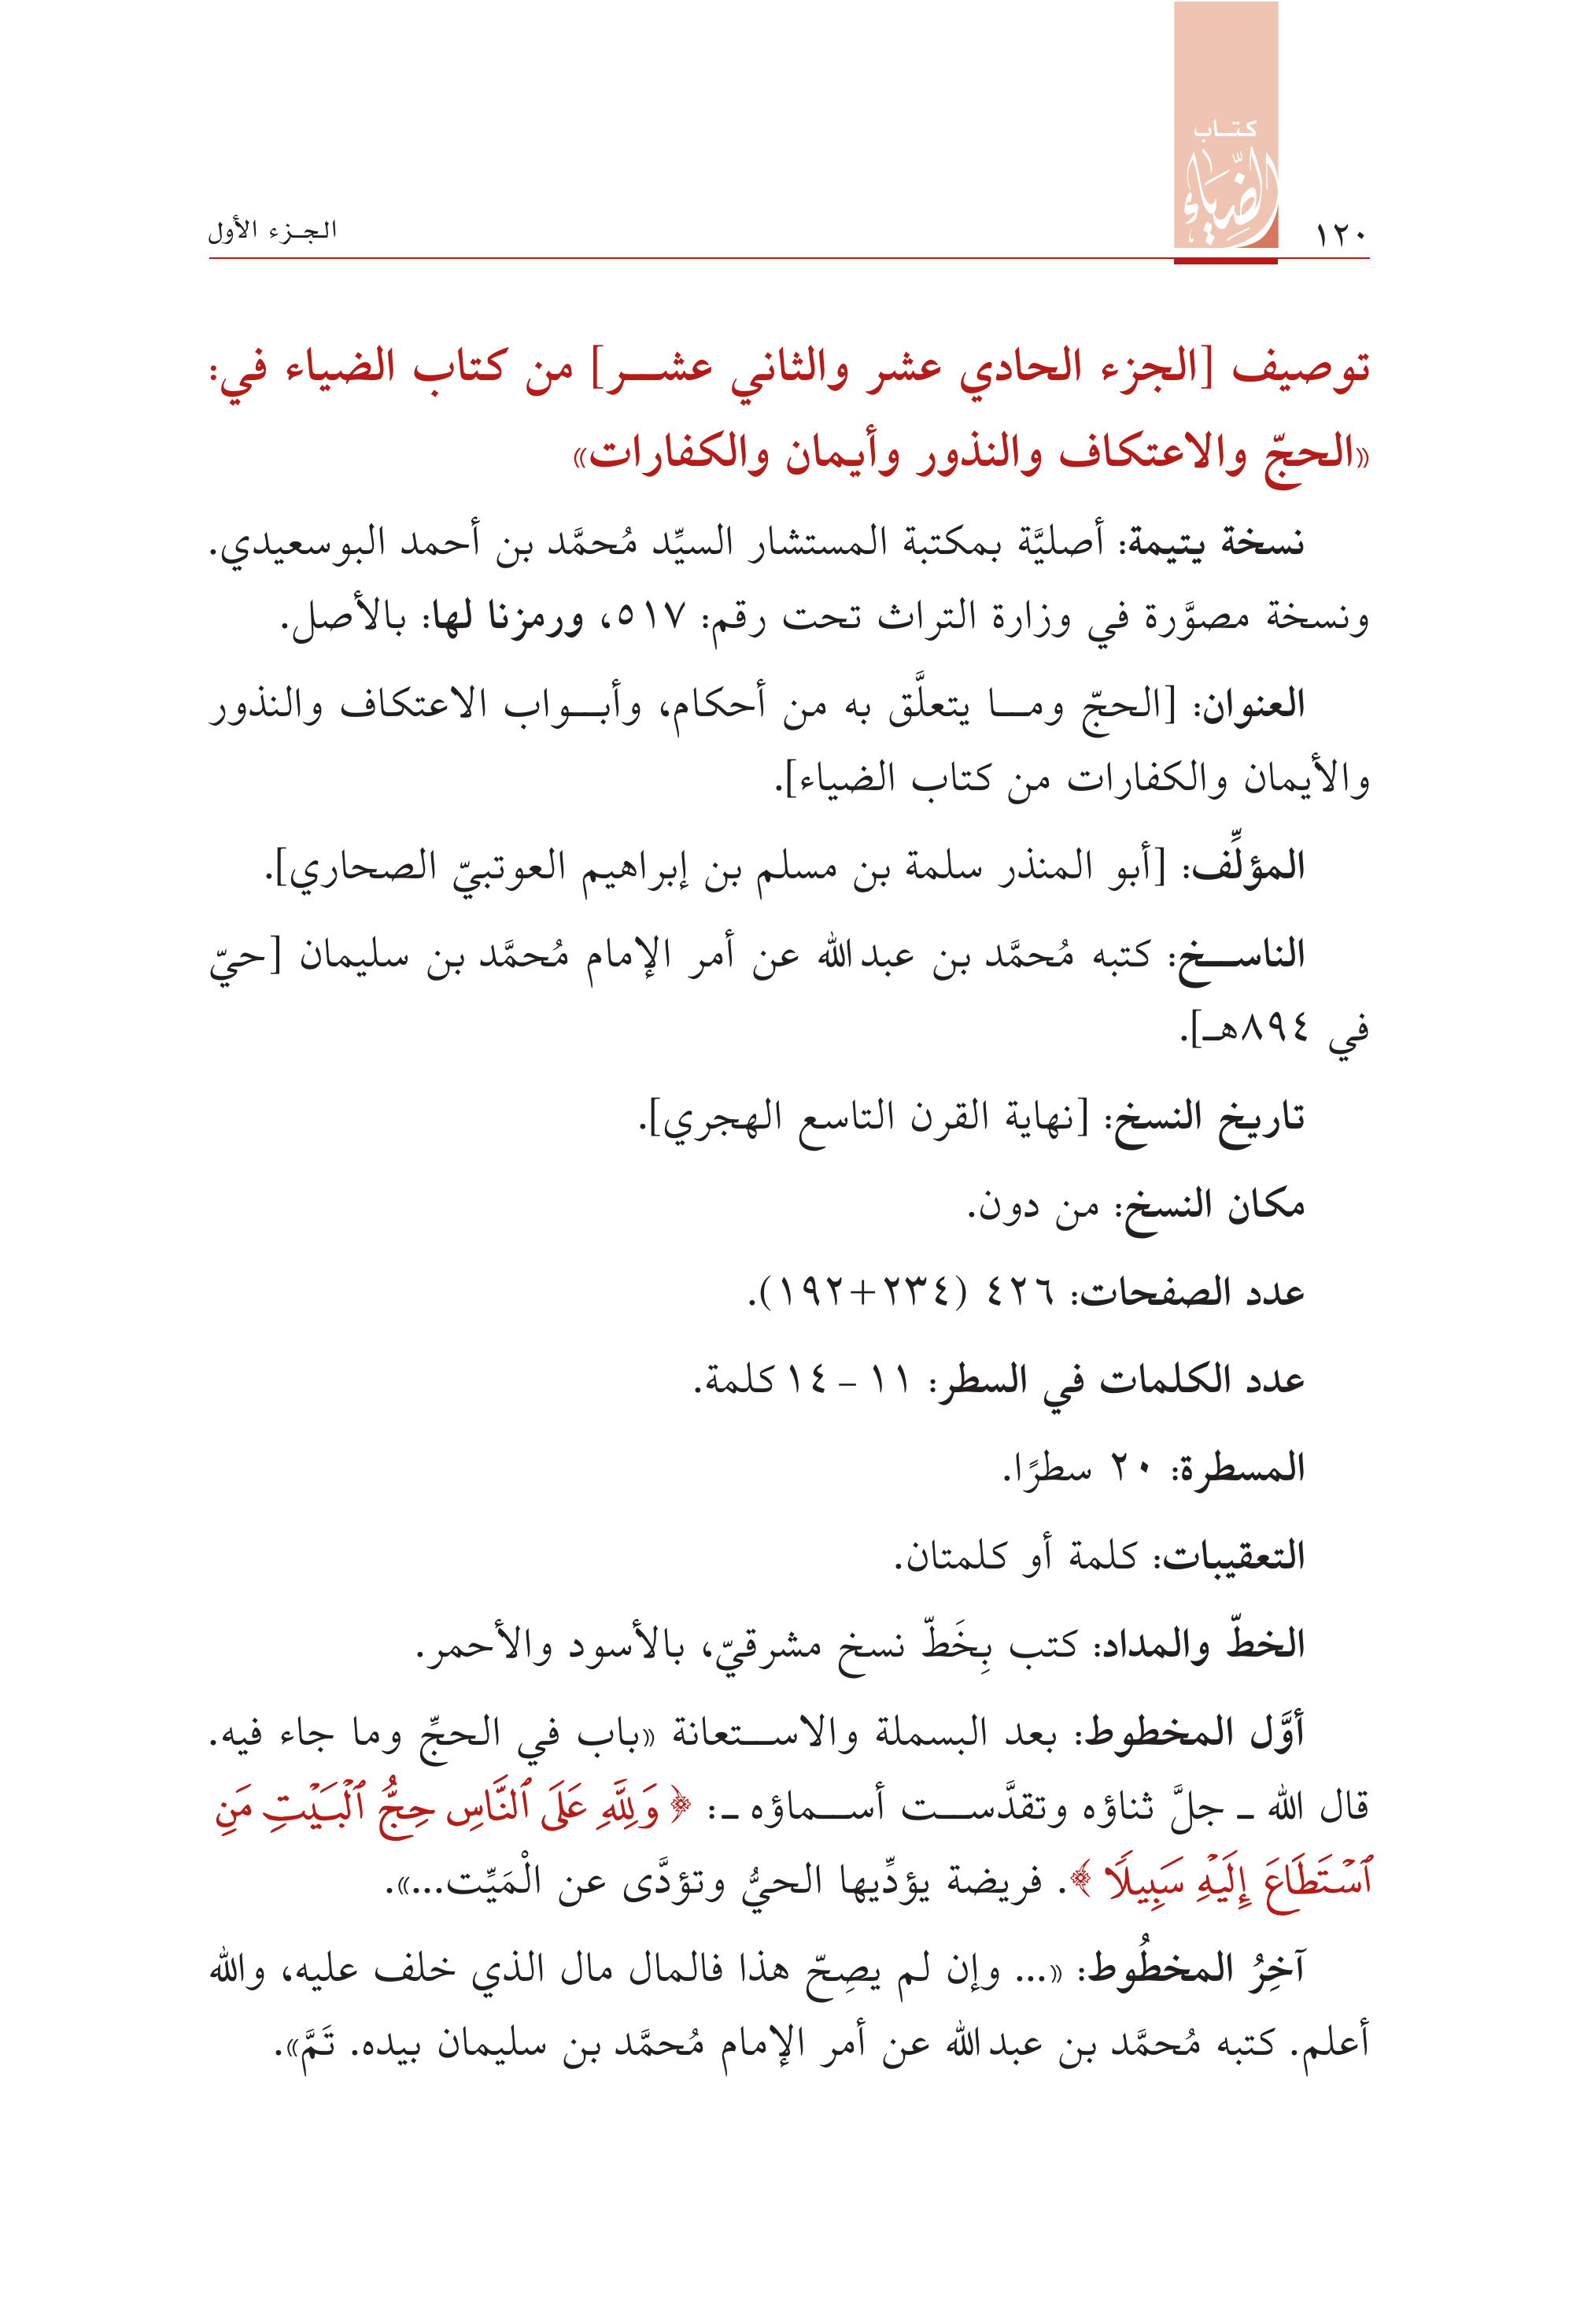 كتـــاب
الضِّيَاء
١٢٠
الـجــزء الأول
توصيف [الجزء الحادي عشر والثاني عشـــر] من كتاب الضياء في:
«الحجّ والاعتكاف والنذور وأيـمان والكفارات»
نسخة يتيمة: أصليَّة بمكتبة المستشار السيِّد مُحمَّد بن أحمد البوسعيدي.
ونسخة مصوَّرة في وزارة التراث تحت رقم: ٥١٧، ورمزنا لها: بالأصل.
العنوان: [الحجّ ومـــا يتعلَّق به من أحكام، وأبـــواب الاعتكاف والنذور
والأيمان والكفارات من كتاب الضياء].
المؤلِّف: [أبو المنذر سلمة بن مسلم بن إبراهيم العوتبيّ الصحاري].
الناســـخ: كتبه مُحمَّد بن عبد الله عن أمر الإمام مُحمَّد بن سليمان [حيّ
في ٨٩٤هـ].
تاريخ النسخ: [نهاية القرن التاسع الهجري].
مكان النسخ: من دون.
عدد الصفحات: ٤٢٦ (٢٣٤+١٩٢).
عدد الكلمات في السطر: ١١ – ١٤ كلمة.
المسطرة: ٢٠ سطرًا.
التعقيبات: كلمة أو كلمتان.
الخطّ والمداد: كتب بِخَطّ نسخ مشرقيّ، بالأسود والأحمر.
أوَّل المخطوط: بعد البسملة والاســـتعانة «باب في الحجِّ وما جاء فيه.
قال الله ـ جلَّ ثناؤه وتقدَّســـت أســـماؤه ـ: ﴿ وَلِلَّهِ عَلَى ٱلنَّاسِ حِجُّ ٱلْبَيْتِ مَنِ
ٱسْتَطَاعَ إِلَيْهِ سَبِيلًا ﴾. فريضة يؤدِّيها الحيُّ وتؤدَّى عن الْمَيِّت...».
آخِرُ المخطُوط: «... وإن لم يصِحّ هذا فالمال مال الذي خلف عليه، والله
أعلم. كتبه مُحمَّد بن عبد الله عن أمر الإمام مُحمَّد بن سليمان بيده. تَمَّ».